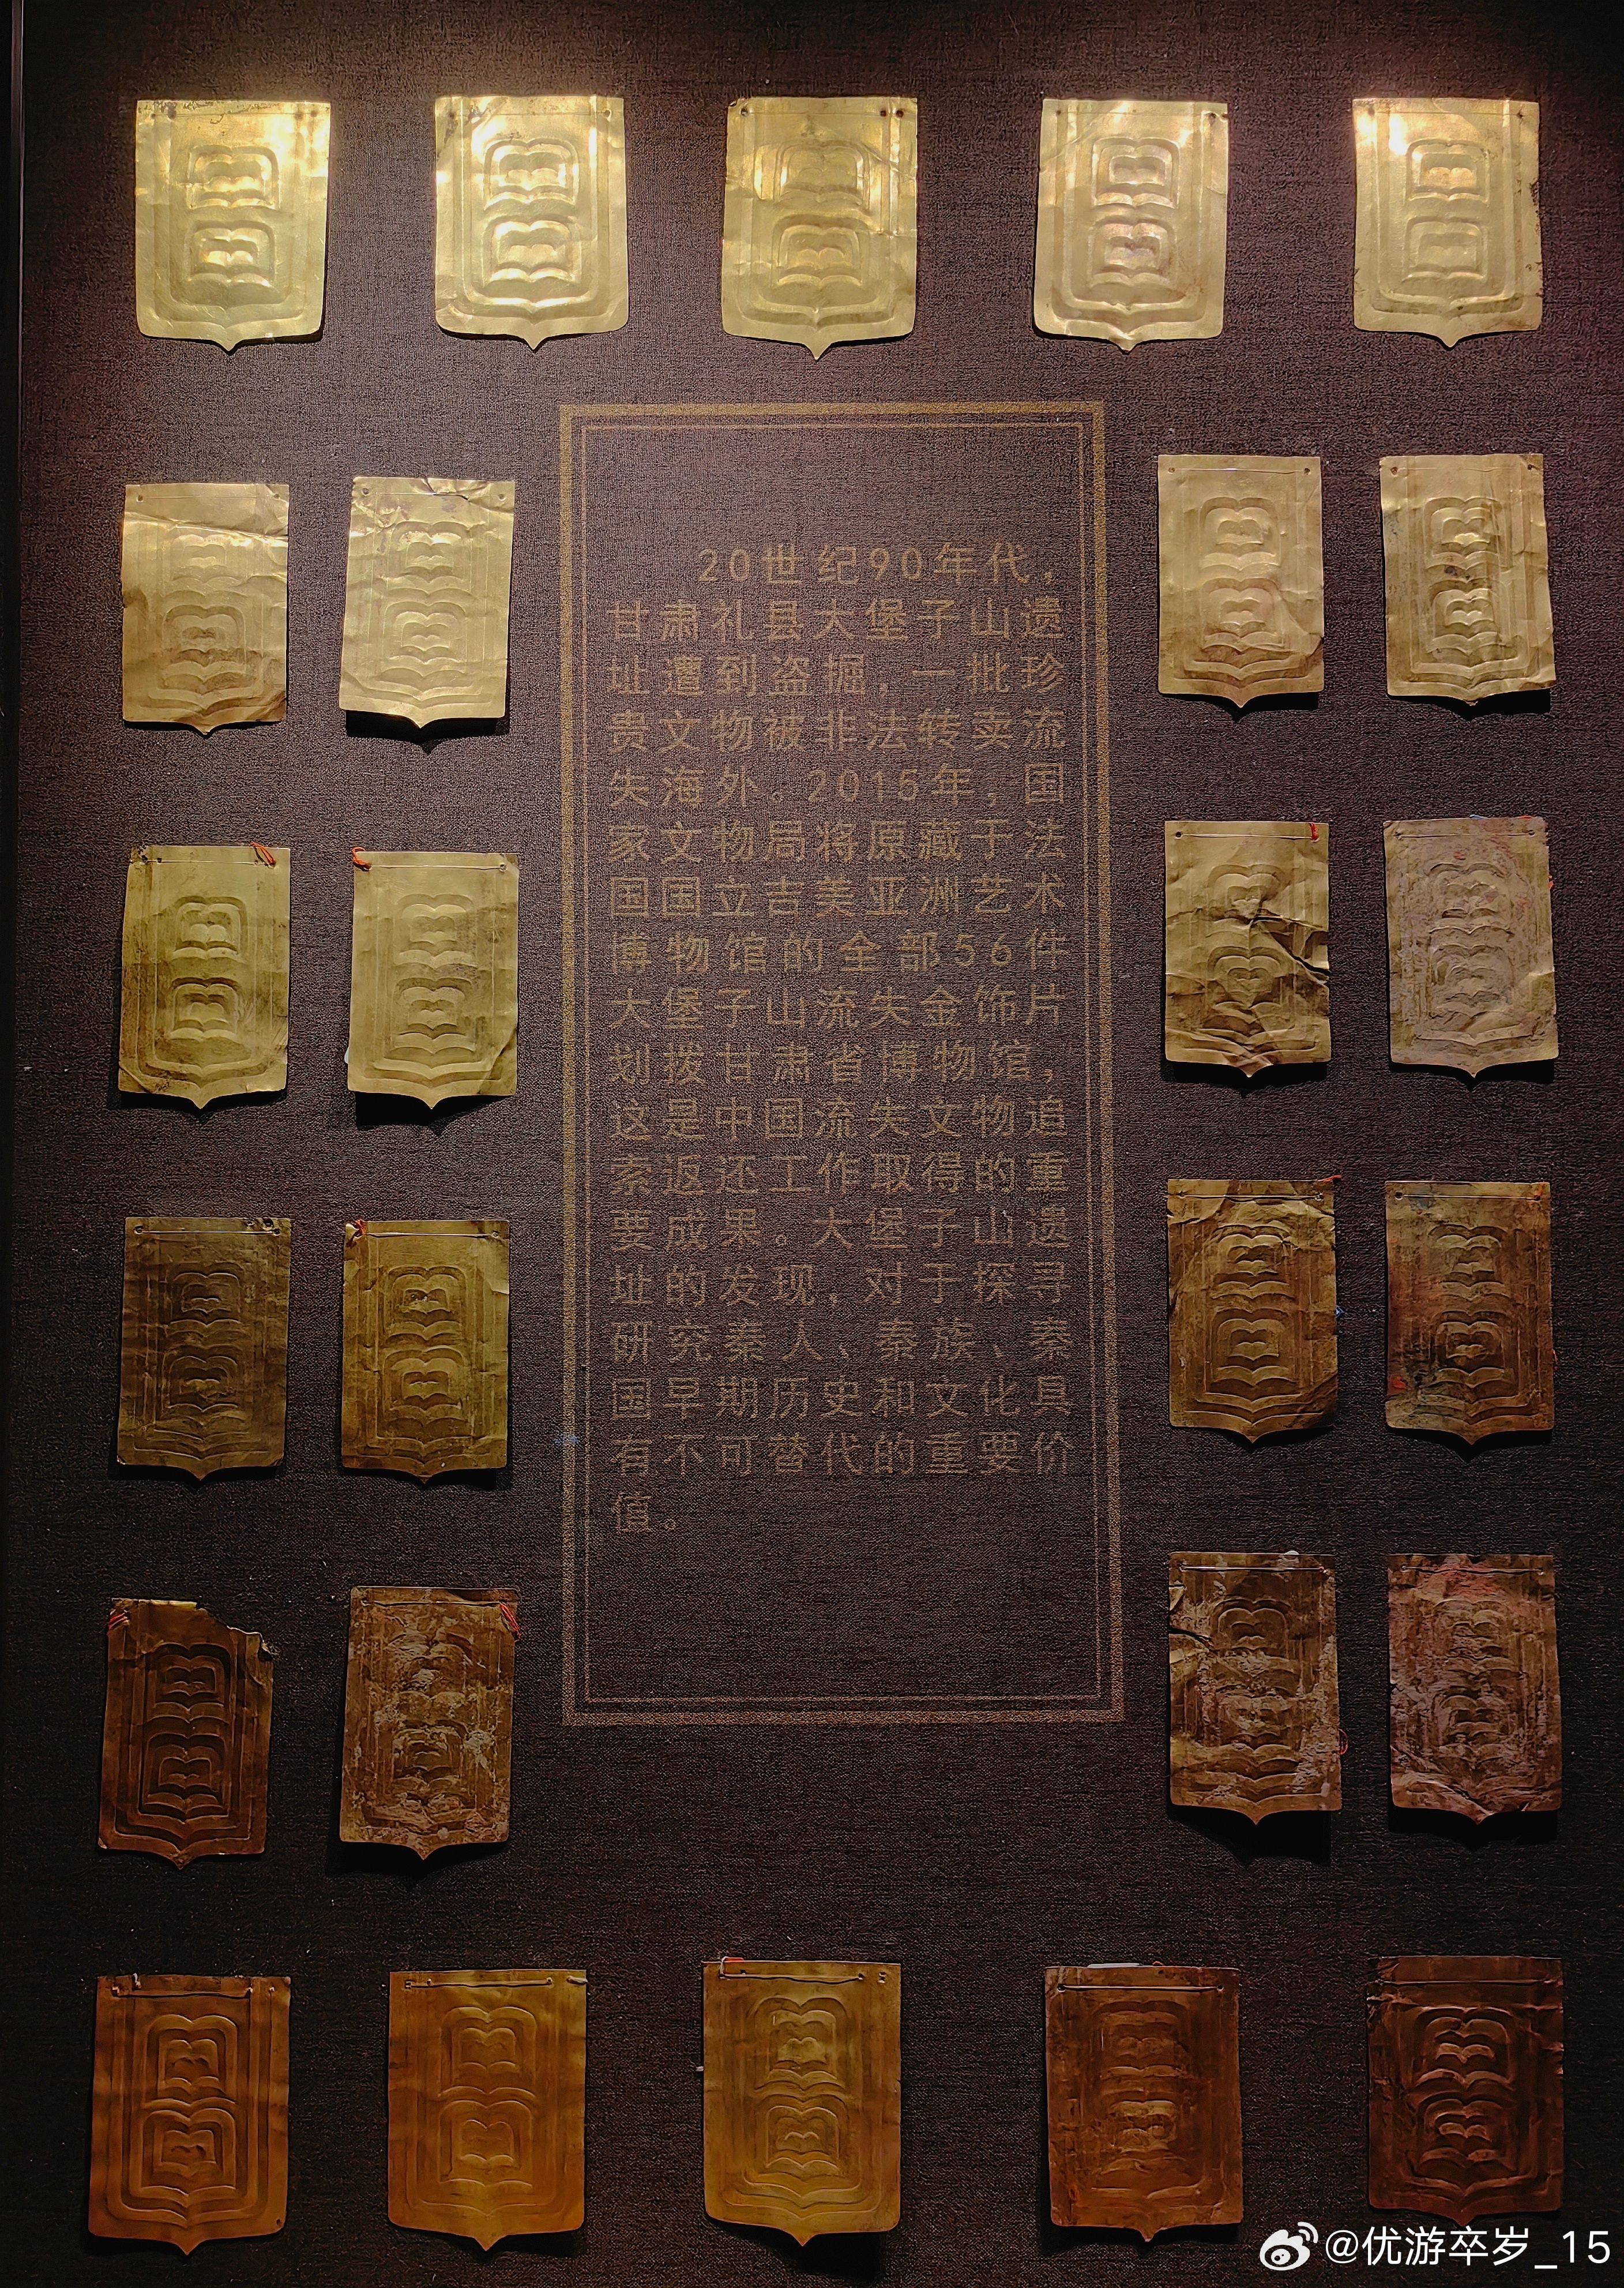 20世纪90年代，
甘肃礼县大堡子山遗
址遭到盗掘，一批珍
贵文物被非法转卖流
失海外。2015年，国
家文物局将原藏于法
国国立吉美亚洲艺术
博物馆的全部56件
大堡子山流失金饰片
划拨甘肃省博物馆，
这是中国流失文物追
索返还工作取得的重
要成果。大堡子山遗
址的发现，对于探寻
研究秦人、秦族、秦
国早期历史和文化具
有不可替代的重要价
值。
@优游卒岁_15